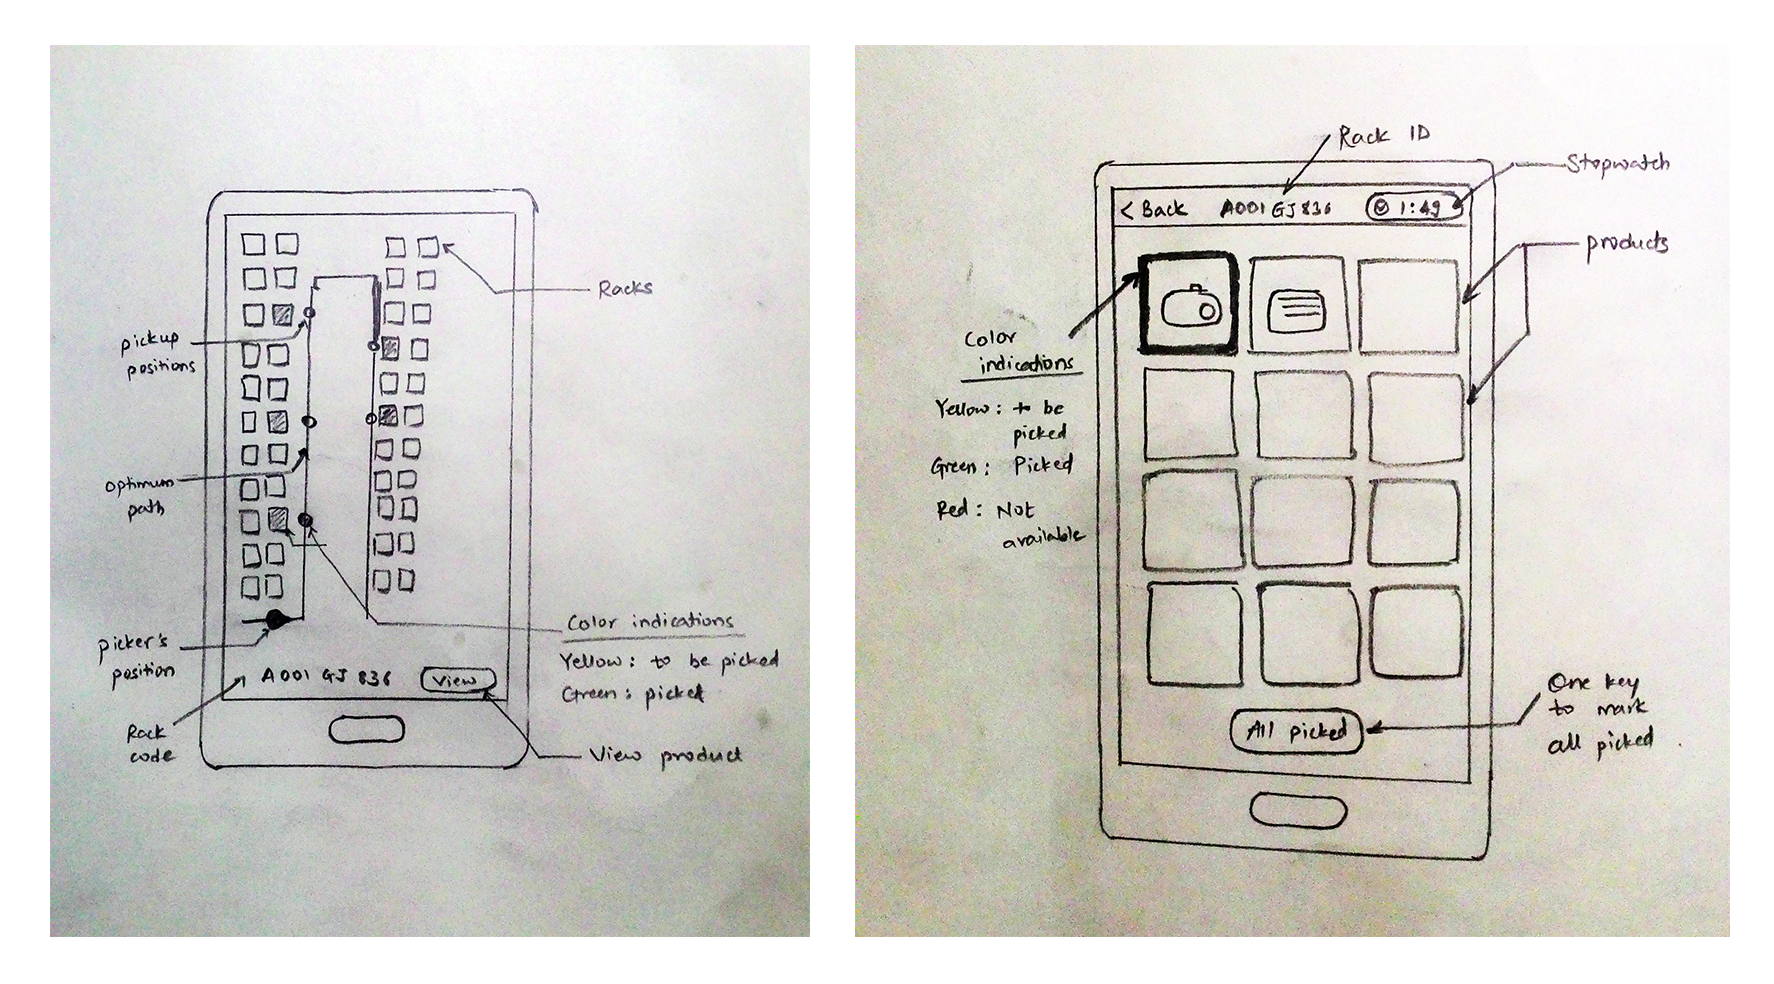 Racks
pickup
positions
optimum
path
picker's
position
A001 GJ 836
View
Rack
code
Color indications
Yellow: to be picked
Green: picked
View product
Rack ID
Stopwatch
< Back A001 GJ 836 1:49
products
Color
indications
Yellow: to be
picked
Green: Picked
Red: Not
available
All picked
One key
to mark
all picked